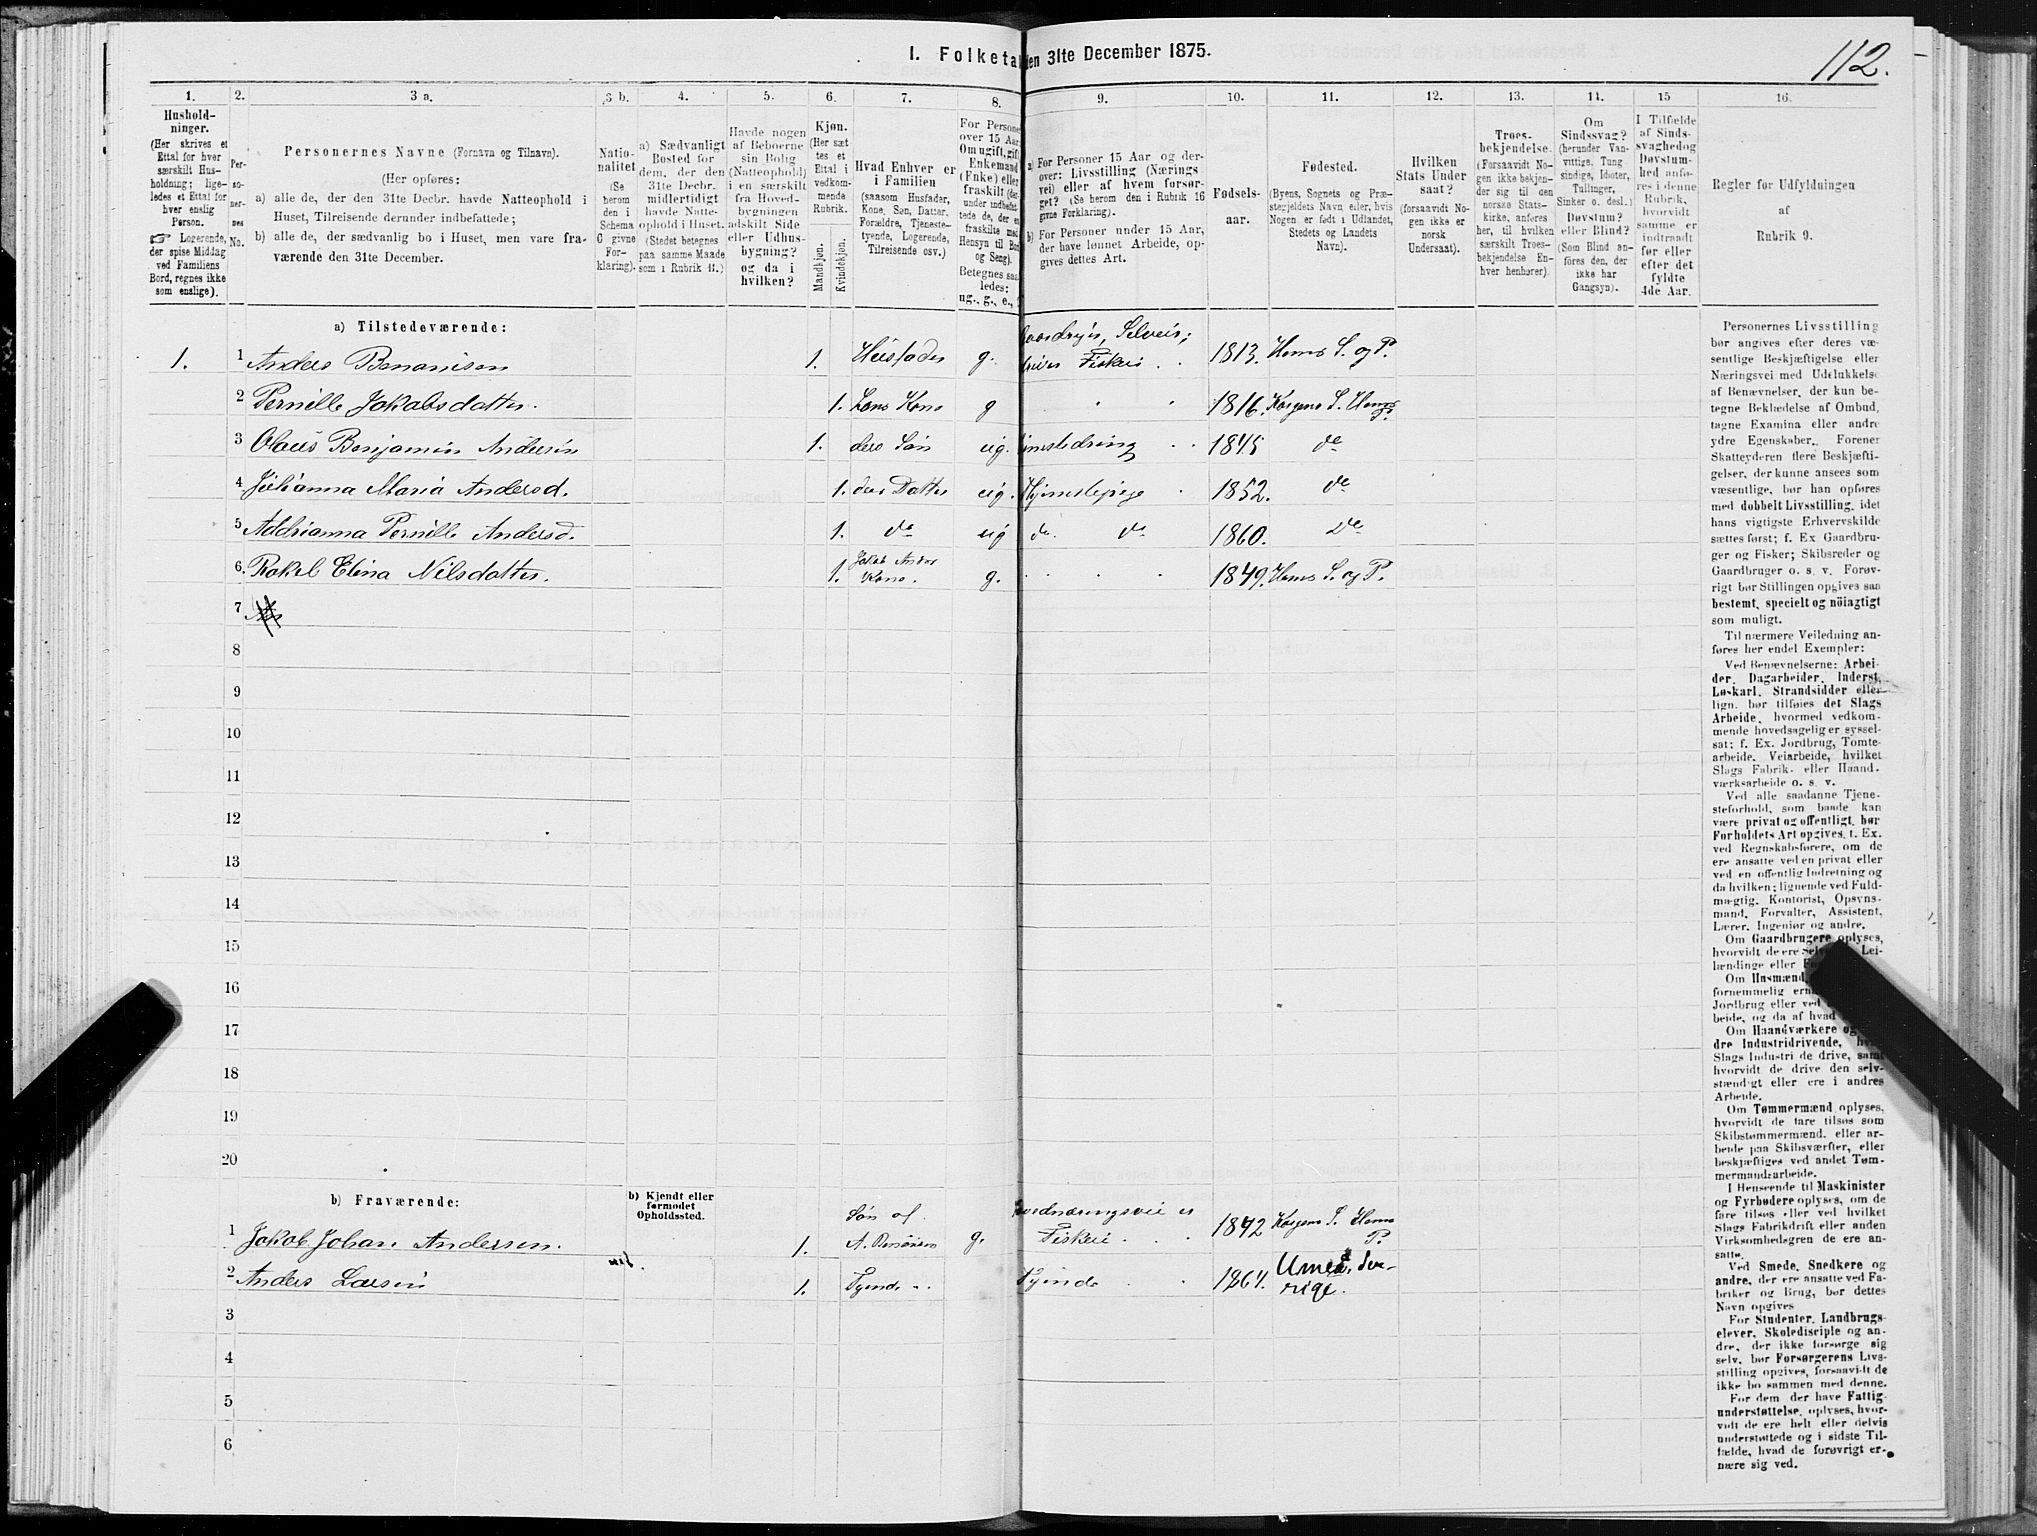 112.
I. Folketal den 31te December 1875.
1. 2. 3 a. 3 b. 4. 5. 6. 7. 8. 9. 10. 11. 12. 13. 14. 15 16.
Hushold-
ninger.
(Her skrives et
Ettal for hver
særskilt Hus-
holdning; lige-
ledes et Ettal for
hver enslig
Person.
☞ Logerende,
der spise Middag
ved Familiens
Bord, regnes ikke
som enslige).
Per-
so-
ner-
nes
No.
Personernes Navne (Fornavn og Tilnavn).
(Her opføres:
a) alle de, der den 31te Decbr. havde Natteophold i
Huset, Tilreisende derunder indbefattede;
b) alle de, der sædvanlig bo i Huset, men vare fra-
værende den 31te December.
Natio-
nalitet
(Se
herom
den i
Schema
C givne
For-
klaring).
a) Sædvanligt
Bosted for
dem, der den
31te Decbr.
midlertidigt
havde Natte-
ophold i Huset.
(Stedet betegnes
paa samme Maade
som i Rubrik 11.)
Havde nogen
af Beboerne
sin Bolig
(Natteophold)
i en særskilt
fra Hoved-
bygningen
adskilt Side
eller Udhus-
bygning?
og da i
hvilken?
Kjøn.
(Her sæt-
tes et
Ettal i
vedkom-
mende
Rubrik.
Mandkjøn.
Kvindekjøn.
Hvad Enhver er
i Familien
(saasom Husfader,
Kone, Søn, Datter,
Forældre, Tjeneste-
tyende, Logerende,
Tilreisende osv.)
For Persone
over 15 Aar
Om ugift, gift
Enkemand
(Enke) eller
fraskilt (der-
under indbefat-
tede de, der er
fraskilte med
Hensyn til Bor
og Seng).
Betegnes saa
ledes:
ug., g., e.,
a) For Personer 15 Aar og der-
over: Livsstilling (Nærings
vei) eller af hvem forsør-
get? (Se herom i Rubrik 16
givne Forklaring).
b) For Personer under 15 Aar,
der have lønnet Arbeide, op-
gives dettes Art.
Fødsels-
aar.
Fødested.
(Byens, Sognets og Præ-
stegjeldets Navn eller, hvis
Nogen er født i Udlandet,
Stedets og Landets
Navn).
Hvilken
Stats Under
saat?
(forsaavidt No-
gen ikke er
norsk
Undersaat).
Troes-
bekjendelse.
(Forsaavidt No-
gen ikke bekjen-
der sig til den
norske Stats-
kirke, anføres
her, til hvilken
særskilt Troes-
bekjendelse En-
hver henhører).
Om
Sindssvag?
(herunder Van-
vittige, Tung
sindige, Idioter,
Tullinger,
Sinker o. desl.)
Døvstum?
eller Blind?
(Som Blind an-
føres den, der
ikke har
Gangsyn).
I Tilfælde
af Sinds-
svaghed og
Døvstum-
hed anfø-
res i denne
Rubrik,
hvorvidt
samme er
indtraadt
før eller
efter det
fyldte
4de Aar.
Regler for Udfyldningen
af
Rubrik 9.
a) Tilstedeværende:
1. 1 Anders Benonisen 1. Husfader g. Gaardbr, Selveier, driver Fiskeri 1813. Hemnes S. og P.
2 Pernille Jakobsdatter. 1. Hans Kone g 1816. Korgens S. Hemn P.
3 Olaus Benjamin Andersen 1. deres Søn ug. 1845 do
4 Johanna Maria Andersd. 1. deres Datter ug. 1852. do
5 Addrianna Pernille Andersd. 1. do ug do. do 1860. Do
6. Rakel Elina Nilsdatter. 1. Jakob Anders Kone. g. 1849. Hemnes S. og P.
7
8
9
10
11
12
13
14
15
16
17
18
19
20
b) Fraværende:
b) Kjendt eller
formodet
Opholdssted.
1 Jakob Johan Andersen. 1. Søn af A. Benonisen g. Hovednæringsvei er Fiskeri 1842 Korgens S. Hemn P.
2 Anders Larsen 1. Tyende Tyende 1864. Umeå, Sve-
rige.
3
4
5
6
Personernes Livsstilling
bør angives efter deres væ-
sentlige Beskjæftigelse eller
Næringsvei med Udelukkelse
af Benævnelser, der kun be-
tegne Beklædelse af Ombud,
tagne Examina eller andre
ydre Egenskaber. Forener
Skatteyderen flere Beskjæfti-
gelser, der kunne ansees som
væsentlige, bør han opføres
med dobbelt Livsstilling, idet
hans vigtigste Erhvervskilde
sættes først; f. Ex Gaardbru-
ger og Fisker; Skibsreder og
Gaardbruger o. s. v. Forøv-
rigt bør Stillingen opgives saa
bestemt, specielt og nöiagtigt
som muligt.
Til nærmere Veiledning an-
føres her endel Exempler:
Ved Benævnelserne: Arbei-
der, Dagarbeider, Inderst,
Løskarl, Strandsidder eller
lign. bør tilføies det Slags
Arbeide, hvormed vedkom-
mende hovedsagelig er syssel-
sat; f. Ex. Jordbrug, Tomte-
arbeide, Veiarbeide, hvilket
Slags Fabrik- eller Haand-
værksarbeide o. s. v.
Ved alle saadanne Tjene-
steforhold, som baade kan
være privat og offentligt, bør
Forholdets Art opgives, t. Ex.
ved Regnskabsførere, om de
ere ansatte ved en privat eller
ved en offentlig Indretning og
da hvilken; lignende ved Fuld-
mægtig, Kontorist, Opsyns-
mand, Forvalter, Assistent,
Lærer, Ingeniør og andre.
Om Gaardbrugere oplyses,
hvorvidt de ere Selv Lei-
lændinge eller
Om Husmænd
fornemmelig
Jordbrug eller ved
beide, og da af hvad
Om Haandværkere og
dre Industridrivende,
Slags Industri de drive, samt
hvorvidt de drive den selv-
stændigt eller ere i andres
Arbeide.
Om Tømmermænd oplyses,
hvorvidt de fare tilsøs som
Skibstømmermænd, eller ar-
beide paa Skibsværfter, eller
beskjæftiges ved andet Tøm-
mermandsarbeide.
I Henseende til Maskinister
og Fyrbødere oplyses, om de
fare tilsøs eller ved hvilket
Slags Fabrikdrift eller anden
Virksomhedsgren de ere an-
satte.
Ved Smede, Snedkere og
andre, der ere ansatte ved Fa-
briker og Brug, bør dettes
Navn opgives
For Studenter, Landbrugs-
elever, Skoledisciple og an-
dre, der ikke forsørge sig
selv, bør Forsørgerens Livs-
stilling opgives, forsaavidt de
ikke bo sammen med denne.
For dem, der have Fattig-
understøttelse, oplyses, hvor-
vidt de ere helt eller delvis
understøttede og i sidste Til-
fælde, hvad de forøvrigt er-
nære sig ved.